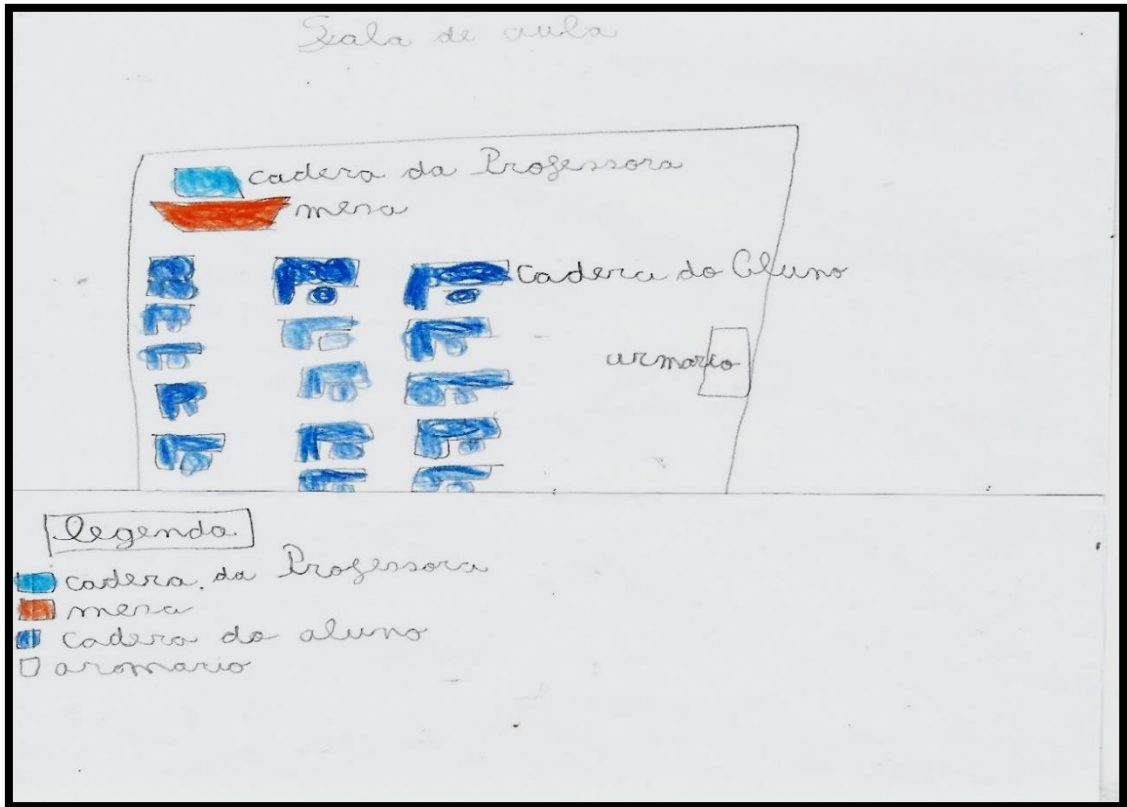 Sala de aula
cadera da Professora
mesa
Cadera do Aluno
armario
legenda
cadera da Professora
mesa
cadera do aluno
aromario